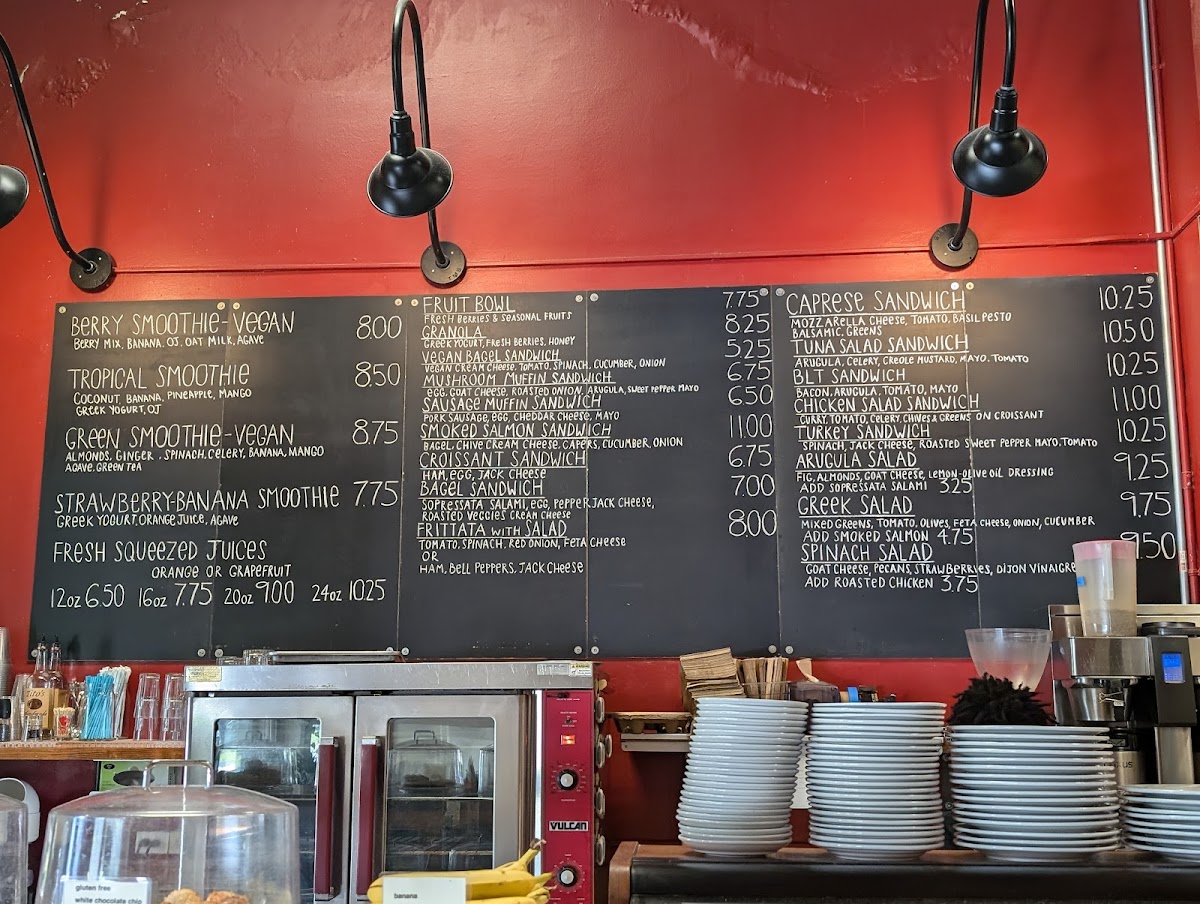 BERRY SMOOTHIE-VEGAN 8.00
BERRY MIX, BANANA, OJ, OAT MILK, AGAVE
TROPICAL SMOOTHIE 8.50
COCONUT, BANANA, PINEAPPLE, MANGO
GREEK YOGURT, OJ
GREEN SMOOTHIE-VEGAN 8.75
ALMONDS, GINGER, SPINACH, CELERY, BANANA, MANGO
AGAVE, GREEN TEA
STRAWBERRY-BANANA SMOOTHIE 7.75
GREEK YOGURT, ORANGE JUICE, AGAVE
FRESH SQUEEZED JUICES
ORANGE OR GRAPEFRUIT
12oz 6.50 16oz 7.75 20oz 9.00 24oz 10.25
FRUIT BOWL 7.75
FRESH BERRIES & SEASONAL FRUITS
GRANOLA 8.25
GREEK YOGURT, FRESH BERRIES, HONEY
VEGAN BAGEL SANDWICH 5.25
VEGAN CREAM CHEESE, TOMATO, SPINACH, CUCUMBER, ONION
MUSHROOM MUFFIN SANDWICH 6.75
EGG, GOAT CHEESE, ROASTED ONION, ARUGULA, SWEET PEPPER MAYO
SAUSAGE MUFFIN SANDWICH 6.50
PORK SAUSAGE, EGG, CHEDDAR CHEESE, MAYO
SMOKED SALMON SANDWICH 11.00
BAGEL, CHIVE CREAM CHEESE, CAPERS, CUCUMBER, ONION
CROISSANT SANDWICH 6.75
HAM, EGG, JACK CHEESE
BAGEL SANDWICH 7.00
SOPRESSATA SALAMI, EGG, PEPPER JACK CHEESE,
ROASTED VEGGIES CREAM CHEESE
FRITTATA WITH SALAD 8.00
TOMATO, SPINACH, RED ONION, FETA CHEESE
OR
HAM, BELL PEPPERS, JACK CHEESE
CAPRESE SANDWICH 10.25
MOZZARELLA CHEESE, TOMATO, BASIL PESTO
BALSAMIC, GREENS
TUNA SALAD SANDWICH 10.50
ARUGULA, CELERY, CREOLE MUSTARD, MAYO, TOMATO
BLT SANDWICH 10.25
BACON, ARUGULA, TOMATO, MAYO
CHICKEN SALAD SANDWICH 11.00
CURRY, TOMATO, CELERY, CHIVES & GREENS ON CROISSANT
TURKEY SANDWICH 10.25
SPINACH, JACK CHEESE, ROASTED SWEET PEPPER MAYO, TOMATO
ARUGULA SALAD 9.25
FIG, ALMONDS, GOAT CHEESE, LEMON-OLIVE OIL DRESSING
ADD SOPRESSATA SALAMI 3.25
GREEK SALAD 9.75
MIXED GREENS, TOMATO, OLIVES, FETA CHEESE, ONION, CUCUMBER
ADD SMOKED SALMON 4.75
SPINACH SALAD 9.50
GOAT CHEESE, PECANS, STRAWBERRIES, DIJON VINAIGRE
ADD ROASTED CHICKEN 3.75
Tito's
VULCAN
gluten free
white chocolate chip
banana